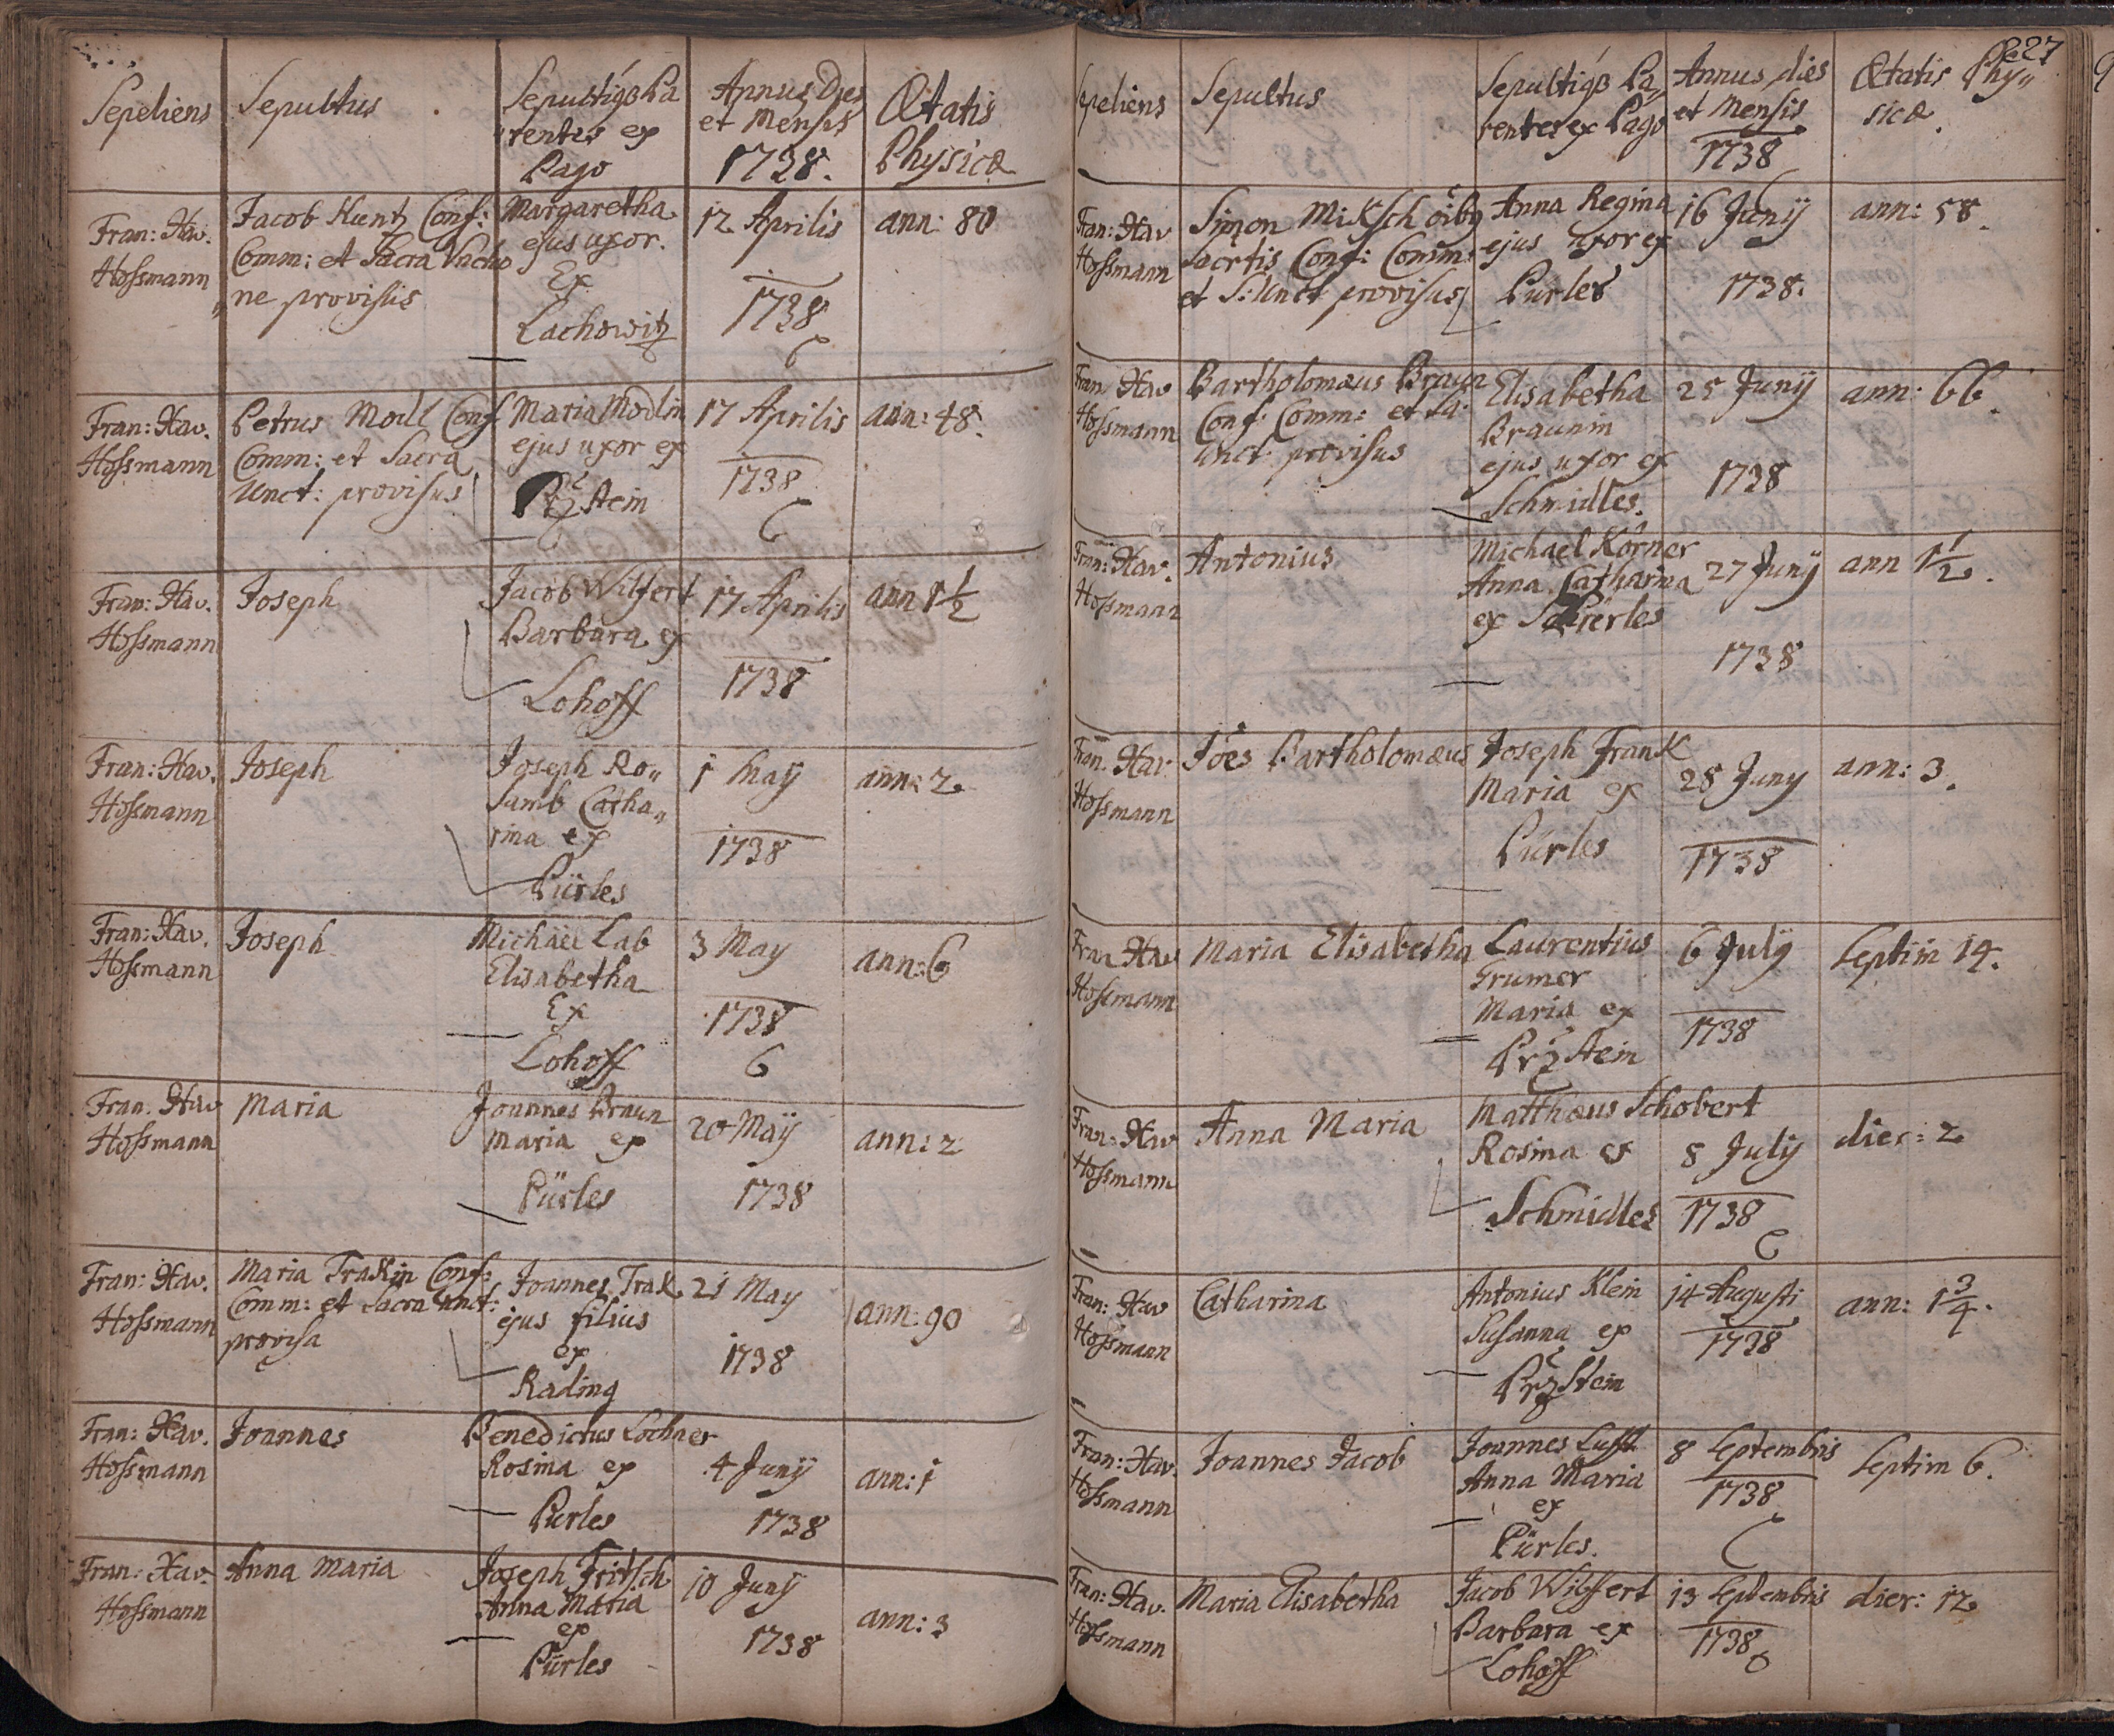 Sepeliens
Sepultus
Sepultigȝ Pa
rentes ex
Pago
Annus Dies
et Mensis
1738.
Ætatis
Physicæ
Fran: Xav.
Hossmann
Jacob Kuntz Conf:
Comm: et Sacra Unctio
ne provisus
Margaretha
ejus uxor.
Ex
Lachowitz
12 Aprilis
1738
ann: 80
Fran: Xav.
Hossmann
Petrus Modl Conf
Comm: et Sacra
Unct: provisus
Maria Modlin
ejus uxor ex
Pržstein
17 Aprilis
1738
ann: 48.
Fran: Xav.
Hossmann
Joseph
Jacob Wilfert
Barbara ex
Lohoff
17 Aprilis
1738
ann 1 1/2
Fran: Xav.
Hossmann
Joseph
Joseph Ro„
samb Catha„
rina ex
Pürles
1 Maÿ
1738
ann: 2.
Fran: Xav.
Hossmann
Joseph
Michäel Lab
Elisabetha
Ex
Lohoff
3 May
1738
ann: 6
Fran. Xav
Hossmann
Maria
Joannes Braun
Maria ex
Pürles
20 Maÿ
1738
ann: 2
Fran: Xav.
Hossmann
Maria Trakin Conf:
Comm: et Sacra Unct:
provisa
Joannes Trak
ejus filius
ex
Rading
21 May
1738
ann: 90
Fran: Xav.
Hossmann
Joannes
Benedictus Lochner
Rosina ex
Pürles
4 Junÿ
1738
ann: 1
Fran: Xav.
Hossmann
Anna Maria
Joseph Fritsch
Anna Maria
ex
Pürles
10 Junÿ
1738
ann: 3
227
Sepeliens
Sepultus
Sepultigȝ Pa„
rentes ex Pago
Annus dies
et Mensis
1738
Ætatis Phy„
sicæ.
Fran: Xav
Hossmann
Simon Miksch öibg
Sacrtis Conf: Comm:
et S: Unct provisus
Anna Regina
ejus uxor ex
Pürles
16 Junÿ
1738.
ann: 58.
Fran: Xav
Hossmann
Bartholomæus Braun
Conf: Comm: et Sa:
Unct: provisus
Elisabetha
Braunin
ejus uxor ex
Schmidles.
25 Junÿ
1738
ann: 66.
Fran: Xav.
Hossmann
Antonius
Michael Körner
Anna Catharina
ex Pürles
27 Junÿ
1738
ann 1 1/2.
Fran. Xav
Hossmann
Joës Bartholomæus
Joseph Frank
Maria ex
Pürles
28 Juny
1738
ann: 3.
Fran Xav
Hossmann
Maria Elisabetha
Laurentius
Grumer
Maria ex
Pržstein
6 Julÿ
1738
Septim 14.
Fran: Xav
Hossmann
Anna Maria
Matthæus Schobert
Rosina ex
Schmidles
8 Julÿ
1738
dier: 2
Fran: Xav
Hossmann
Catharina
Antonius Klein
Susanna ex
Pržstein
14 Augusti
1738
ann: 1 3/4.
Fran: Xav.
Hossmann
Joannes Jacob
Joannes Lufft
Anna Maria
ex
Pürles.
8 Septembris
1738
Septim 6.
Fran: Xav.
Hossmann
Maria Elisabetha
Jacob Wilffert
Barbara ex
Lohoff
13 Septembris
1738
dier: 12